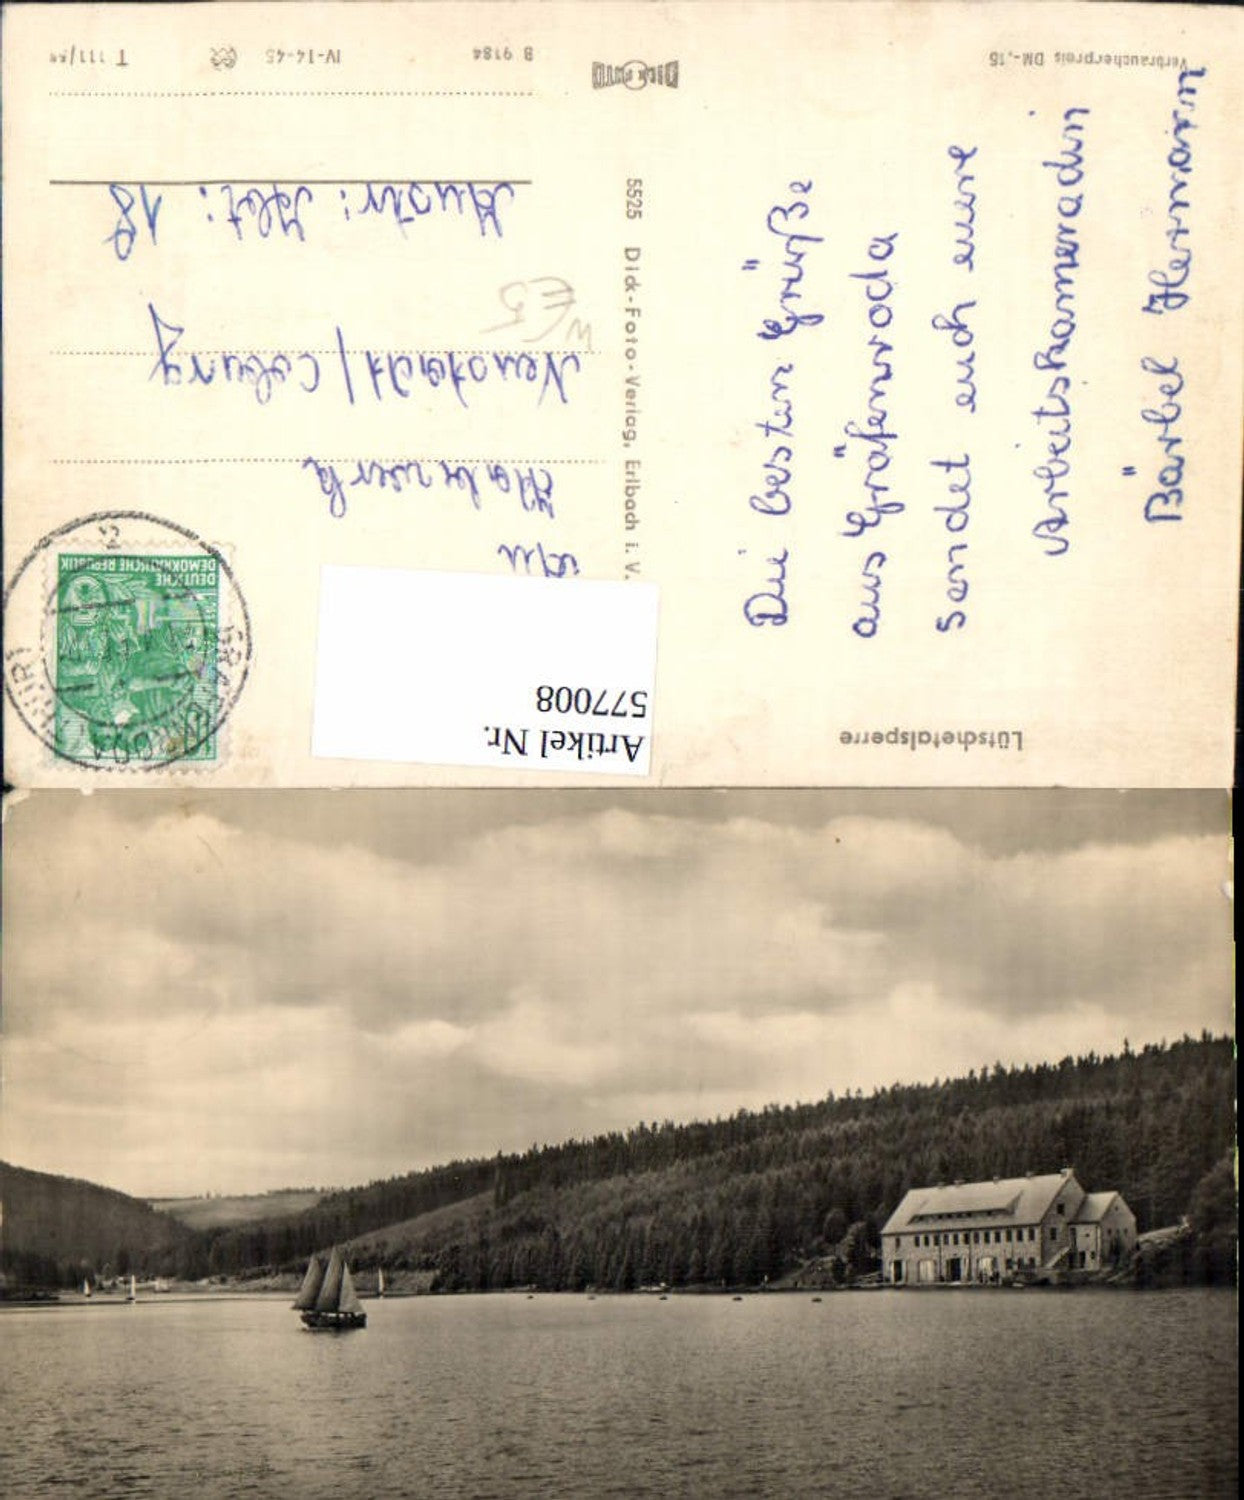 Lütschetalsperre
Die besten Grüße
aus Gräfenroda
sendet euch eure
Arbeitskameradin
Bärbel Herrmann
Verbraucherpreis DM -,15
5525 Dick-Foto-Verlag, Erlbach i. V.
DICK FOTO
Artikel Nr.
577008
An
Neustadt / Coburg
Mustr: Abt: 18
B 9184
IV-14-45
T 111/
DEUTSCHE
DEMOKRATISCHE REPUBLIK
GRÄFENRODA
(THÜR)
2